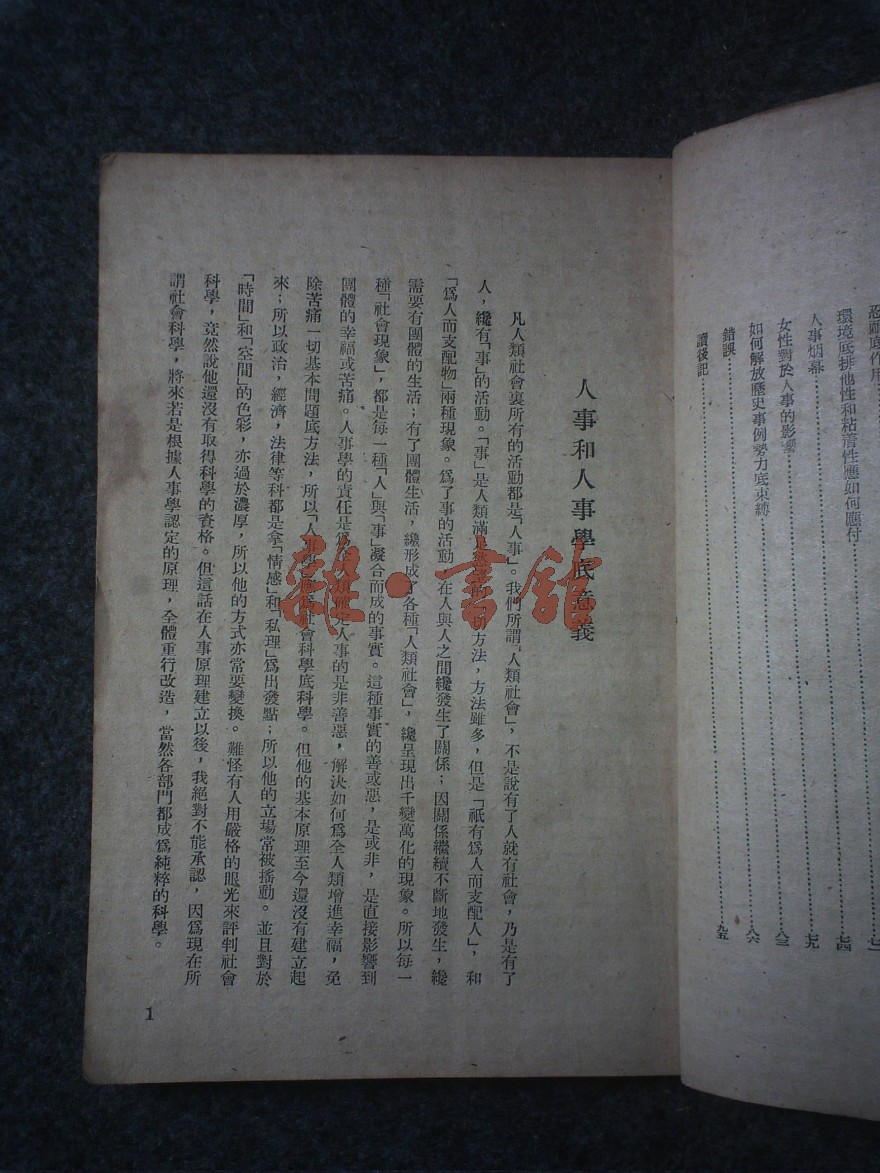 忍耐底作用
環境底排他性和粘着性應如何應付……七四
人事烟幕……七九
女性對於人事的影響……八三
如何解放歷史事例勢力底束縛……八六
錯誤……九五
讀後記……
人事和人事學底意義
凡人類社會裏所有的活動都是「人事」。我們所謂「人類社會」，不是說有了人就有社會，乃是有了
人，纔有「事」的活動。「事」是人類滿足慾望的一切方法，方法雖多，但是「祇有爲人而支配人」，和
「爲人而支配物」兩種現象。爲了事的活動，在人與人之間纔發生了關係；因關係繼續不斷地發生，纔
需要有團體的生活；有了團體生活，纔形成了各種「人類社會」，纔呈現出千變萬化的現象。所以每一
種「社會現象」，都是每一種「人」與「事」凝合而成的事實。這種事實的善或惡，是或非，是直接影響到
團體的幸福或苦痛。人事學的責任是爲全人類確定人事的是非善惡，解決如何爲全人類增進幸福，免
除苦痛一切基本問題底方法，所以「人事學」應爲社會科學底科學。但他的基本原理至今還沒有建立起
來；所以政治，經濟，法律等科都是拿「情感」和「私理」爲出發點；所以他的立場常被搖動。並且對於
「時間」和「空間」的色彩，亦過於濃厚，所以他的方式亦常要變換。難怪有人用嚴格的眼光來評判社會
科學，竟然說他還沒有取得科學的資格。但這話在人事原理建立以後，我絕對不能承認，因爲現在所
謂社會科學，將來若是根據人事學認定的原理，全體重行改造，當然各部門都成爲純粹的科學。
1
雜·書館